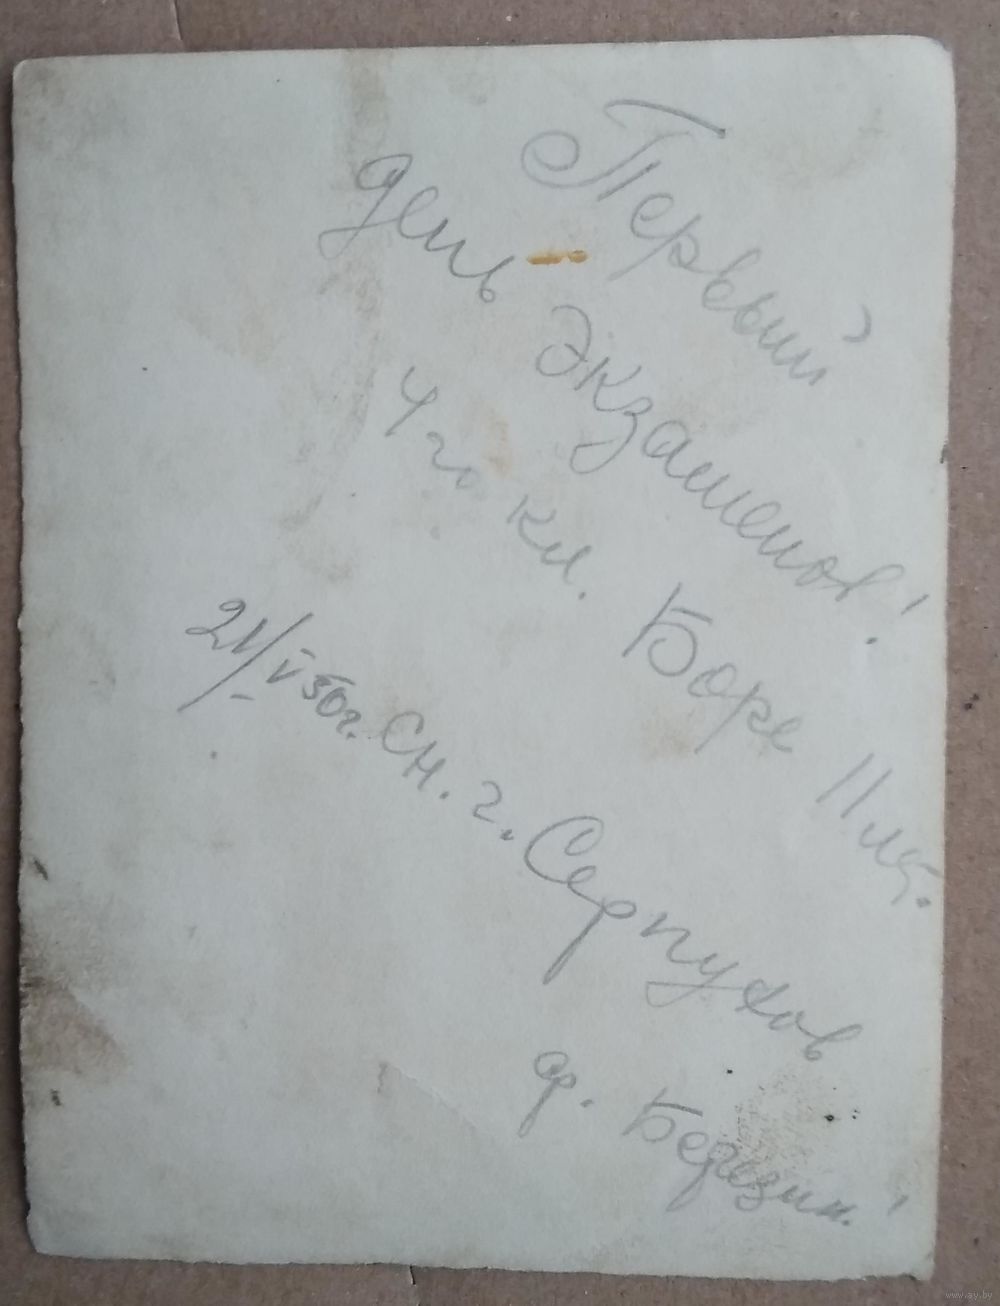 Первый
день Экзаменов!
4го кл. Боре 11 лет.
21/V 50г. Сн. г. Серпухов
ф. Березин.
www.ay.by